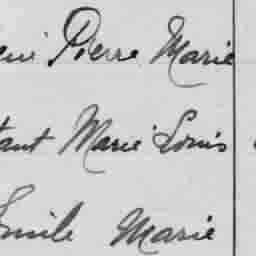 Pierre Marie
Marie Louis
Emile Marie